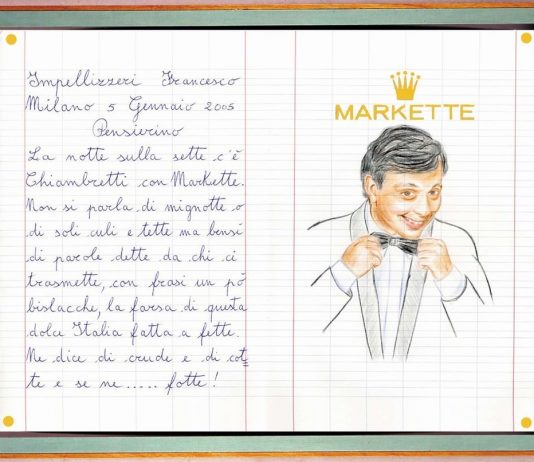 Impellizzeri Francesco
Milano 5 Gennaio 2005
Pensierino
La notte sulla sette c'è
Chiambretti con Markette.
Non si parla di mignotte o
di soli culi e tette ma bensì
di parole dette da chi ci
trasmette, con frasi un pò
bislacche, la farsa di questa
dolce Italia fatta a fette.
Ne dice di crude e di cot
te e se ne..... fotte!
MARKETTE